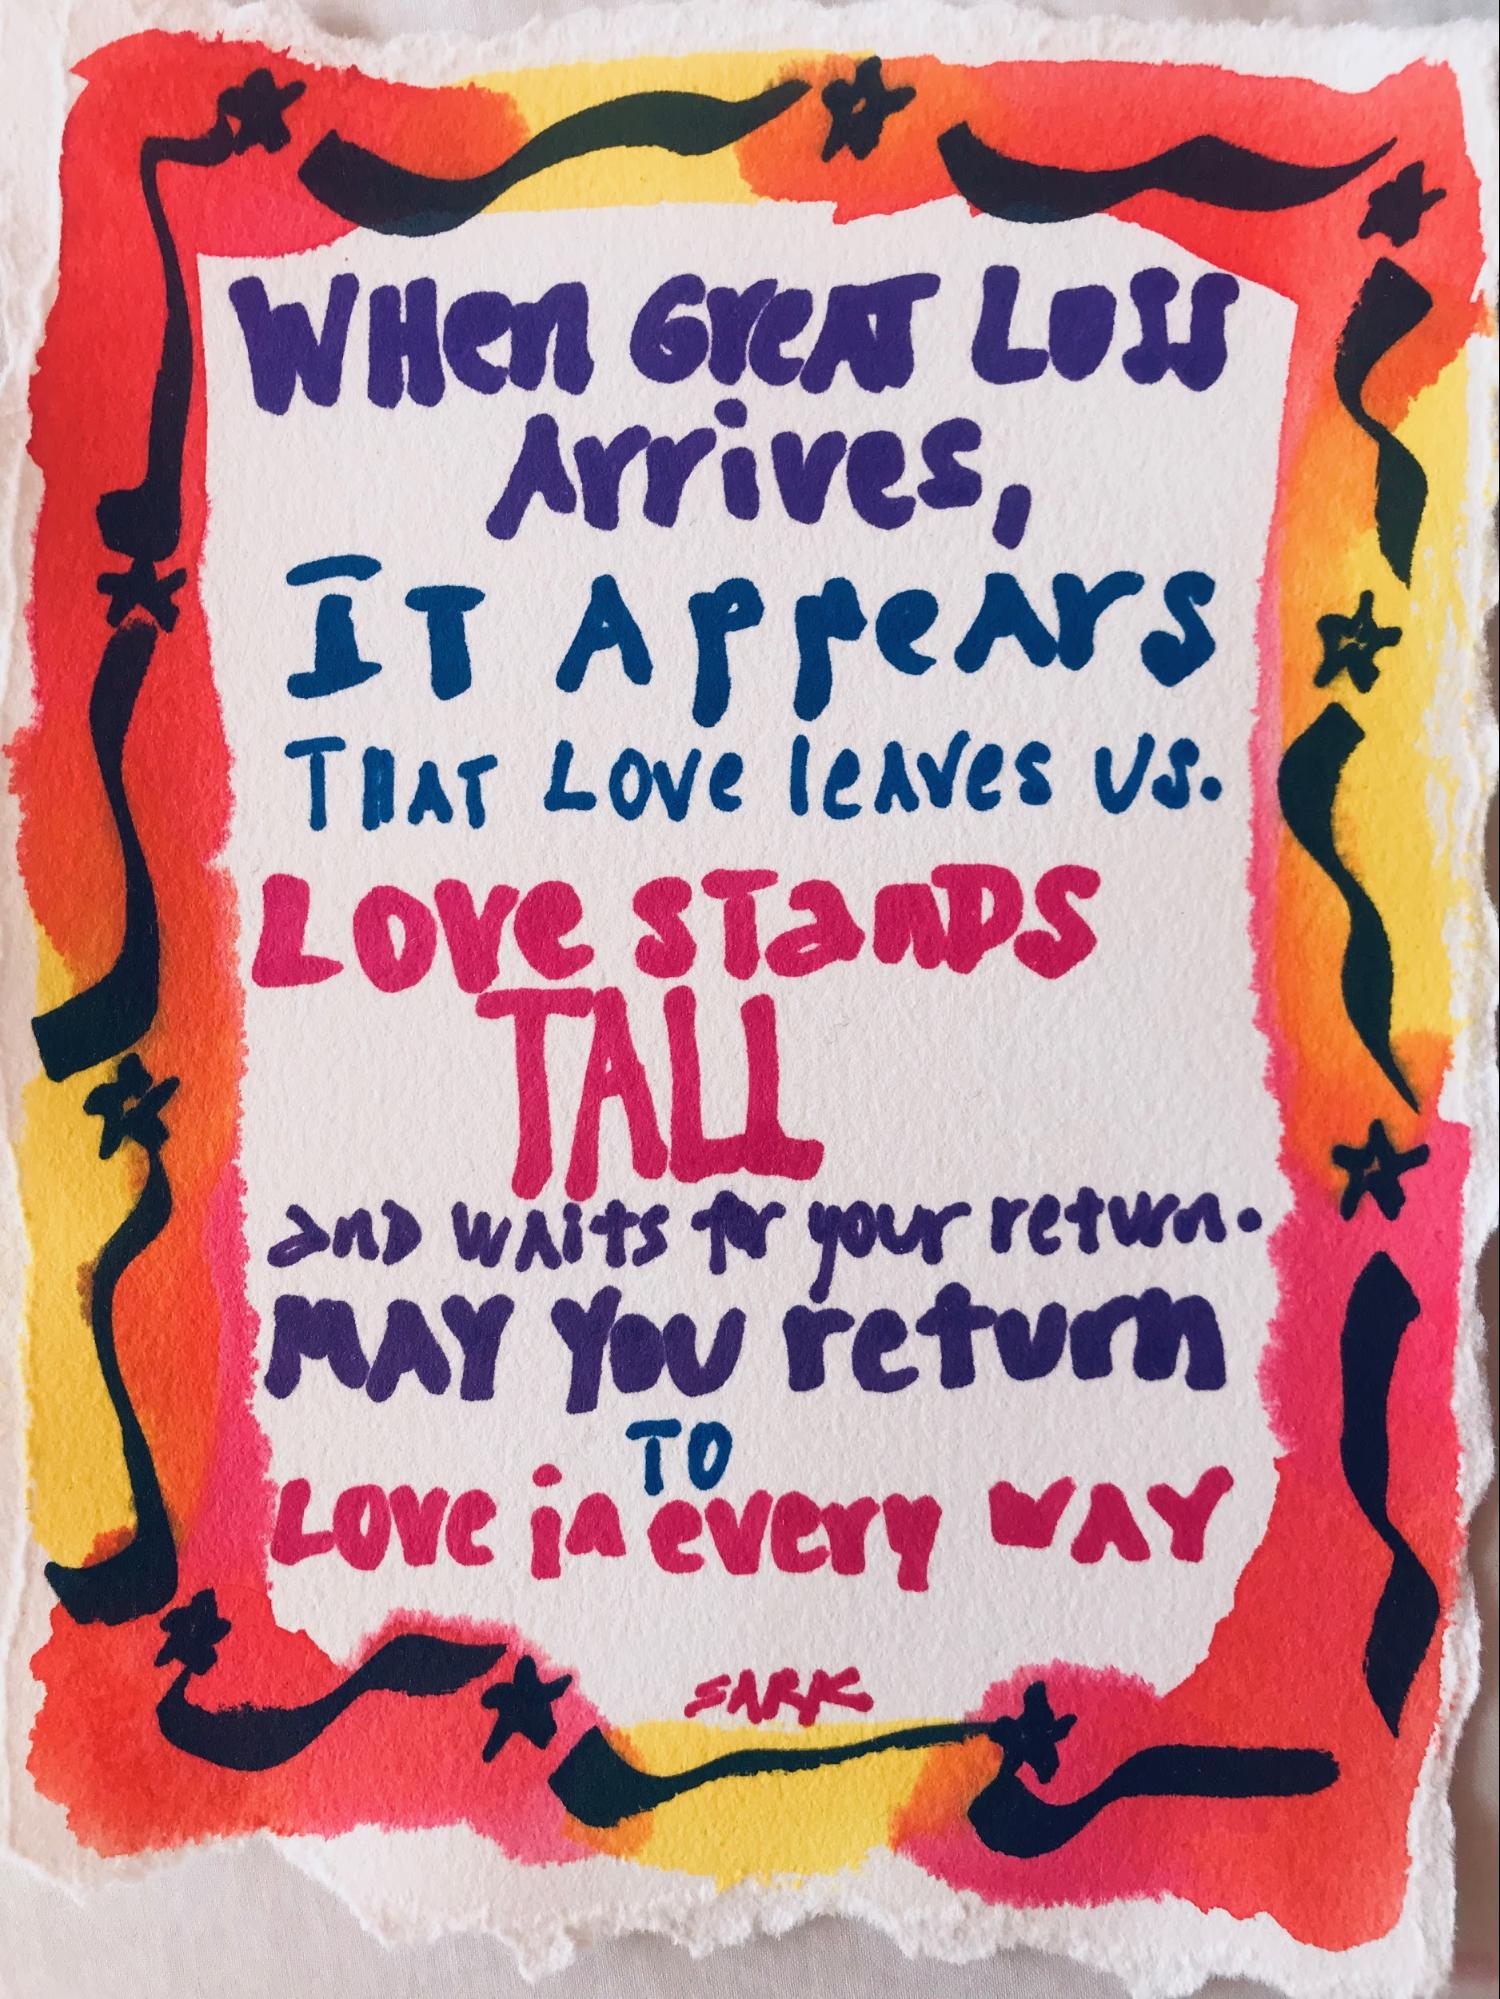 WHen GreAT Loss
Arrives,
IT AppeArs
THAT Love leaves us.
Love stanDs
TALL
and waits for your return.
MAY You return
TO
Love in every WAY
SARK